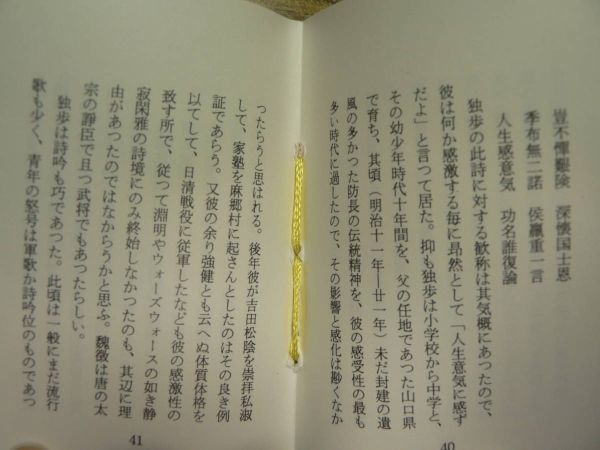 豈不憚艱険　深懐国士恩
季布無二諾　侯嬴重一言
人生感意気　功名誰復論
独歩の此詩に対する歓称は其気概にあつたので、
彼は何か感激する毎に昂然として「人生意気に感ず
だよ」と言つて居た。抑も独歩は小学校から中学と、
その幼少年時代十年間を、父の任地であつた山口県
で育ち、其頃（明治十一年―廿一年）未だ封建の遺
風の多かつた防長の伝統精神を、彼の感受性の最も
多い時代に過したので、その影響と感化は尠くなか
40
つたらうと思はれる。後年彼が吉田松陰を崇拝私淑
して、家塾を麻郷村に起さんとしたのはその良き例
証であらう。又彼の余り強健とも云へぬ体質体格を
以てして、日清戦役に従軍したなども彼の感激性の
致す所で、従つて淵明やウォーズウォースの如き静
寂閑雅の詩境にのみ終始しなかつたのも、其辺に理
由があつたのではなからうかと思ふ。魏徴は唐の太
宗の諍臣で且つ武将でもあつたらしい。
独歩は詩吟も巧であつた。此頃は一般にまだ流行
歌も少く、青年の怒号は軍歌か詩吟位のものであつ
41